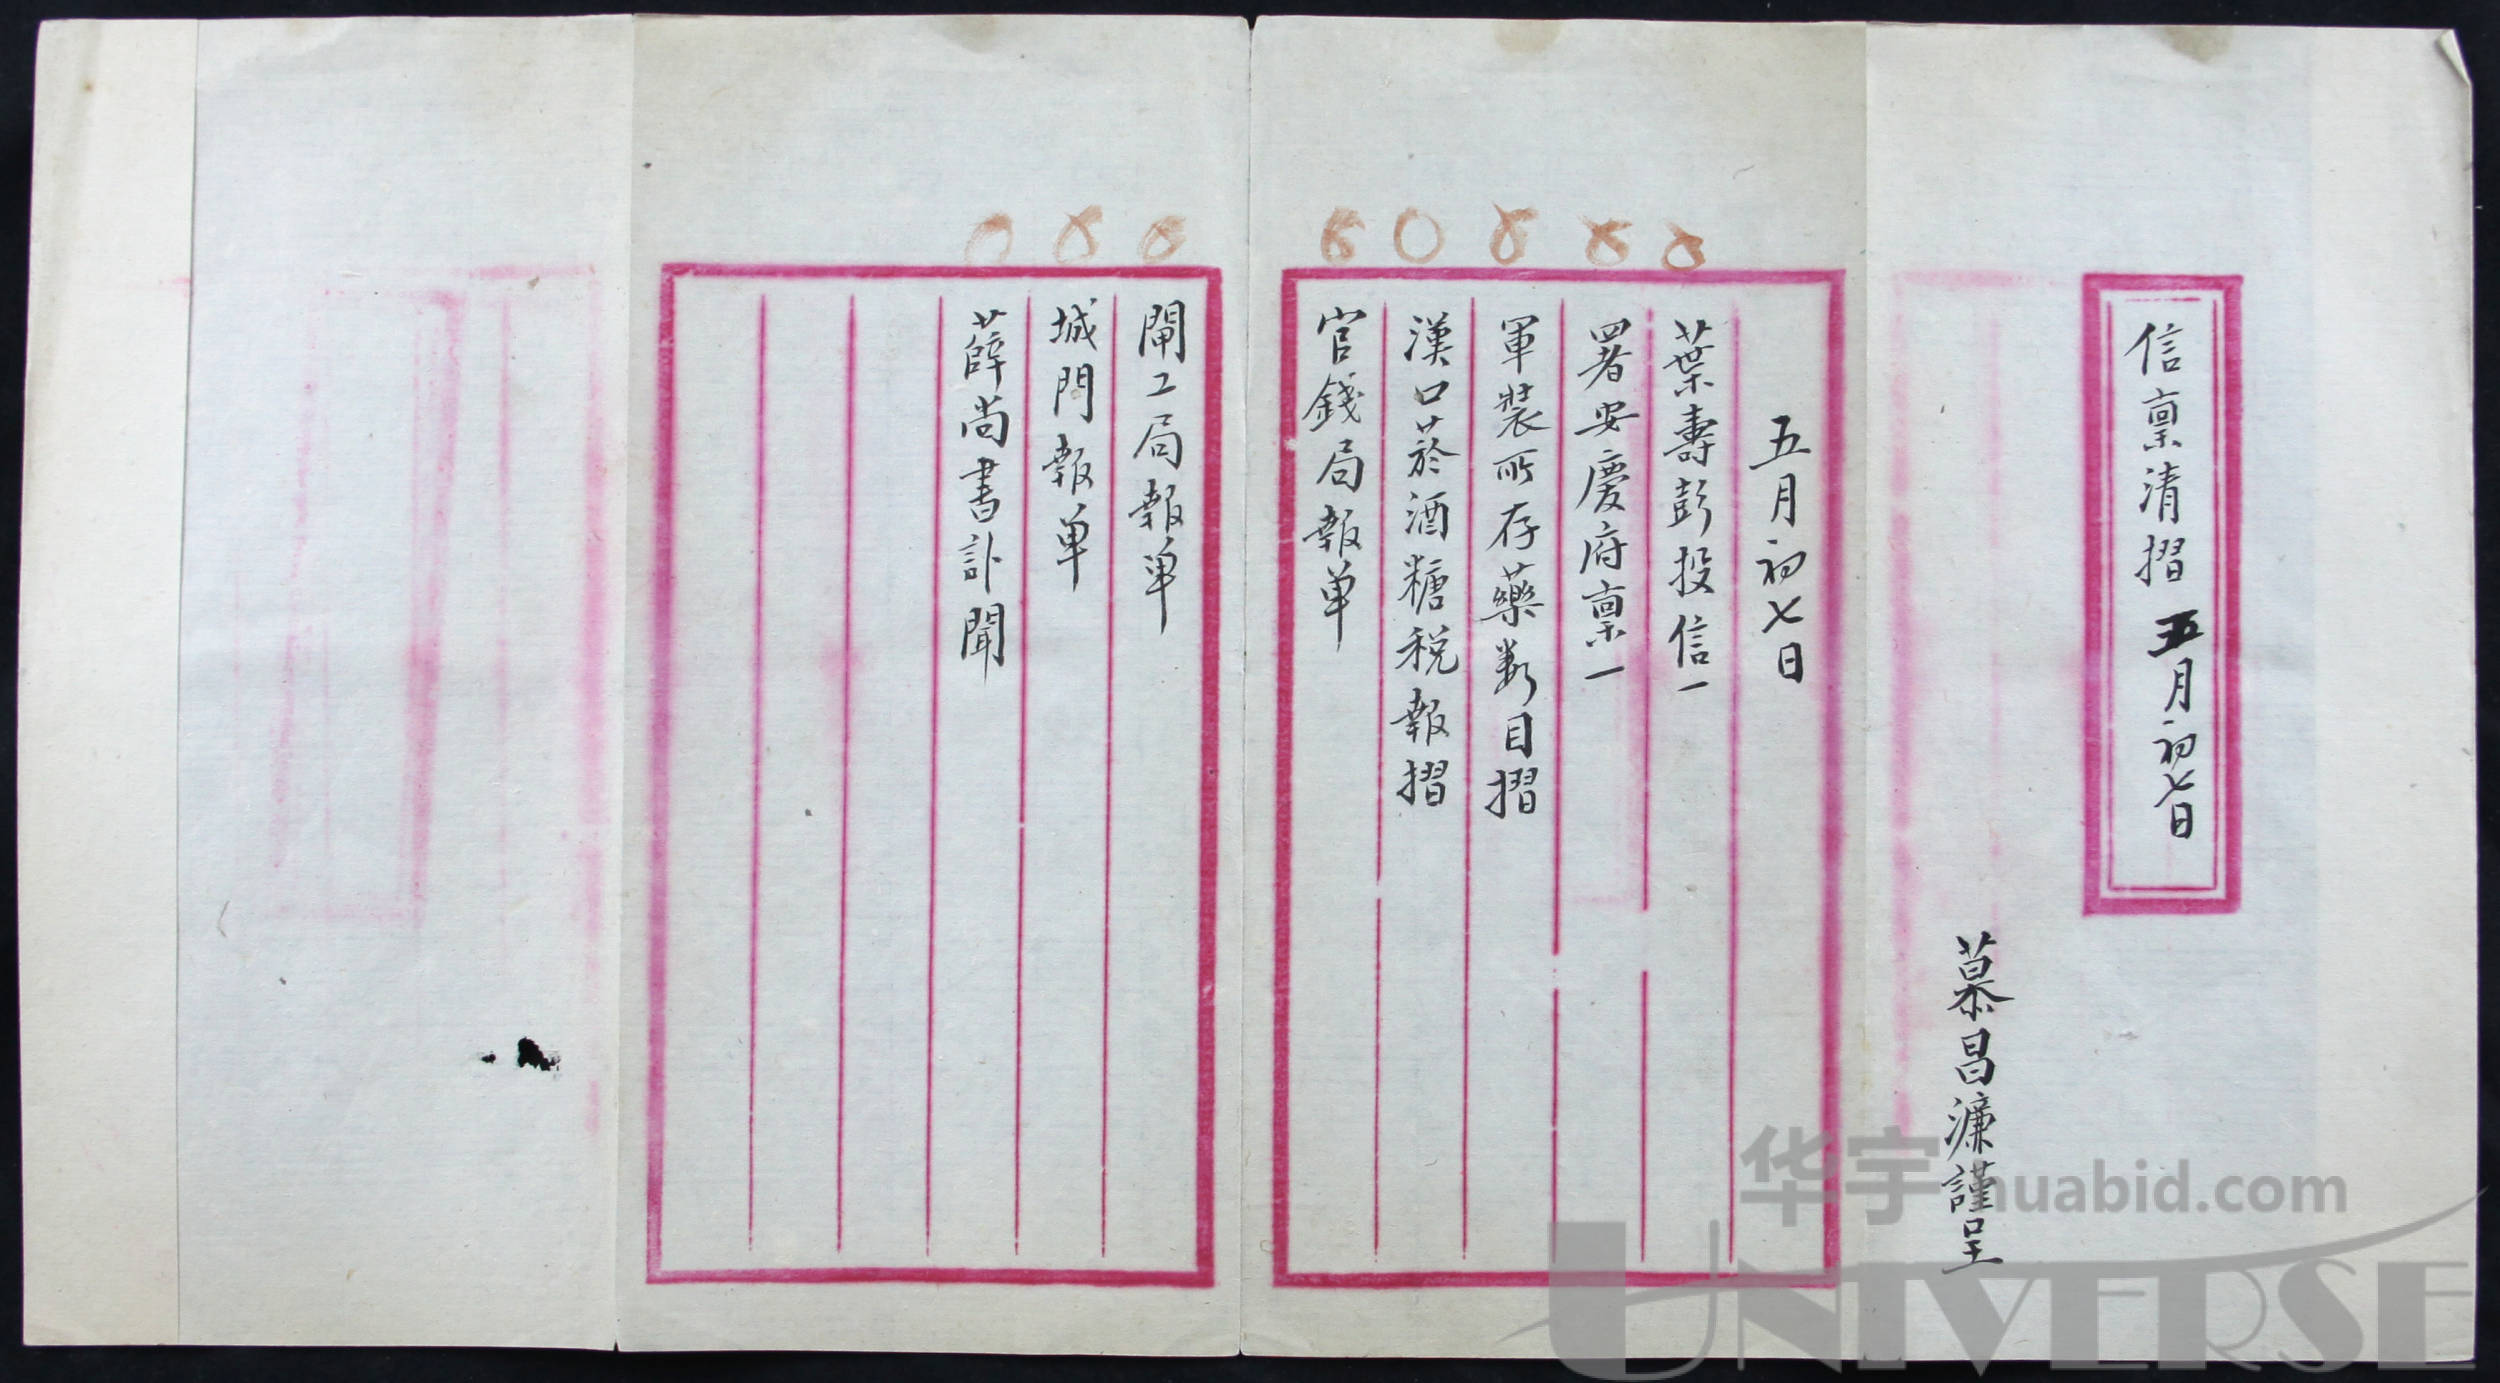 信稟清摺 五月初七日
慕昌濂謹呈
五月初七日
葉壽彭投信一
署安慶府稟一
軍裝所存藥数目摺
漢口菸酒糖税報摺
官錢局報单
閘工局報单
城門報单
薛尚書訃聞
华宇huabid.com
UNIVERSE